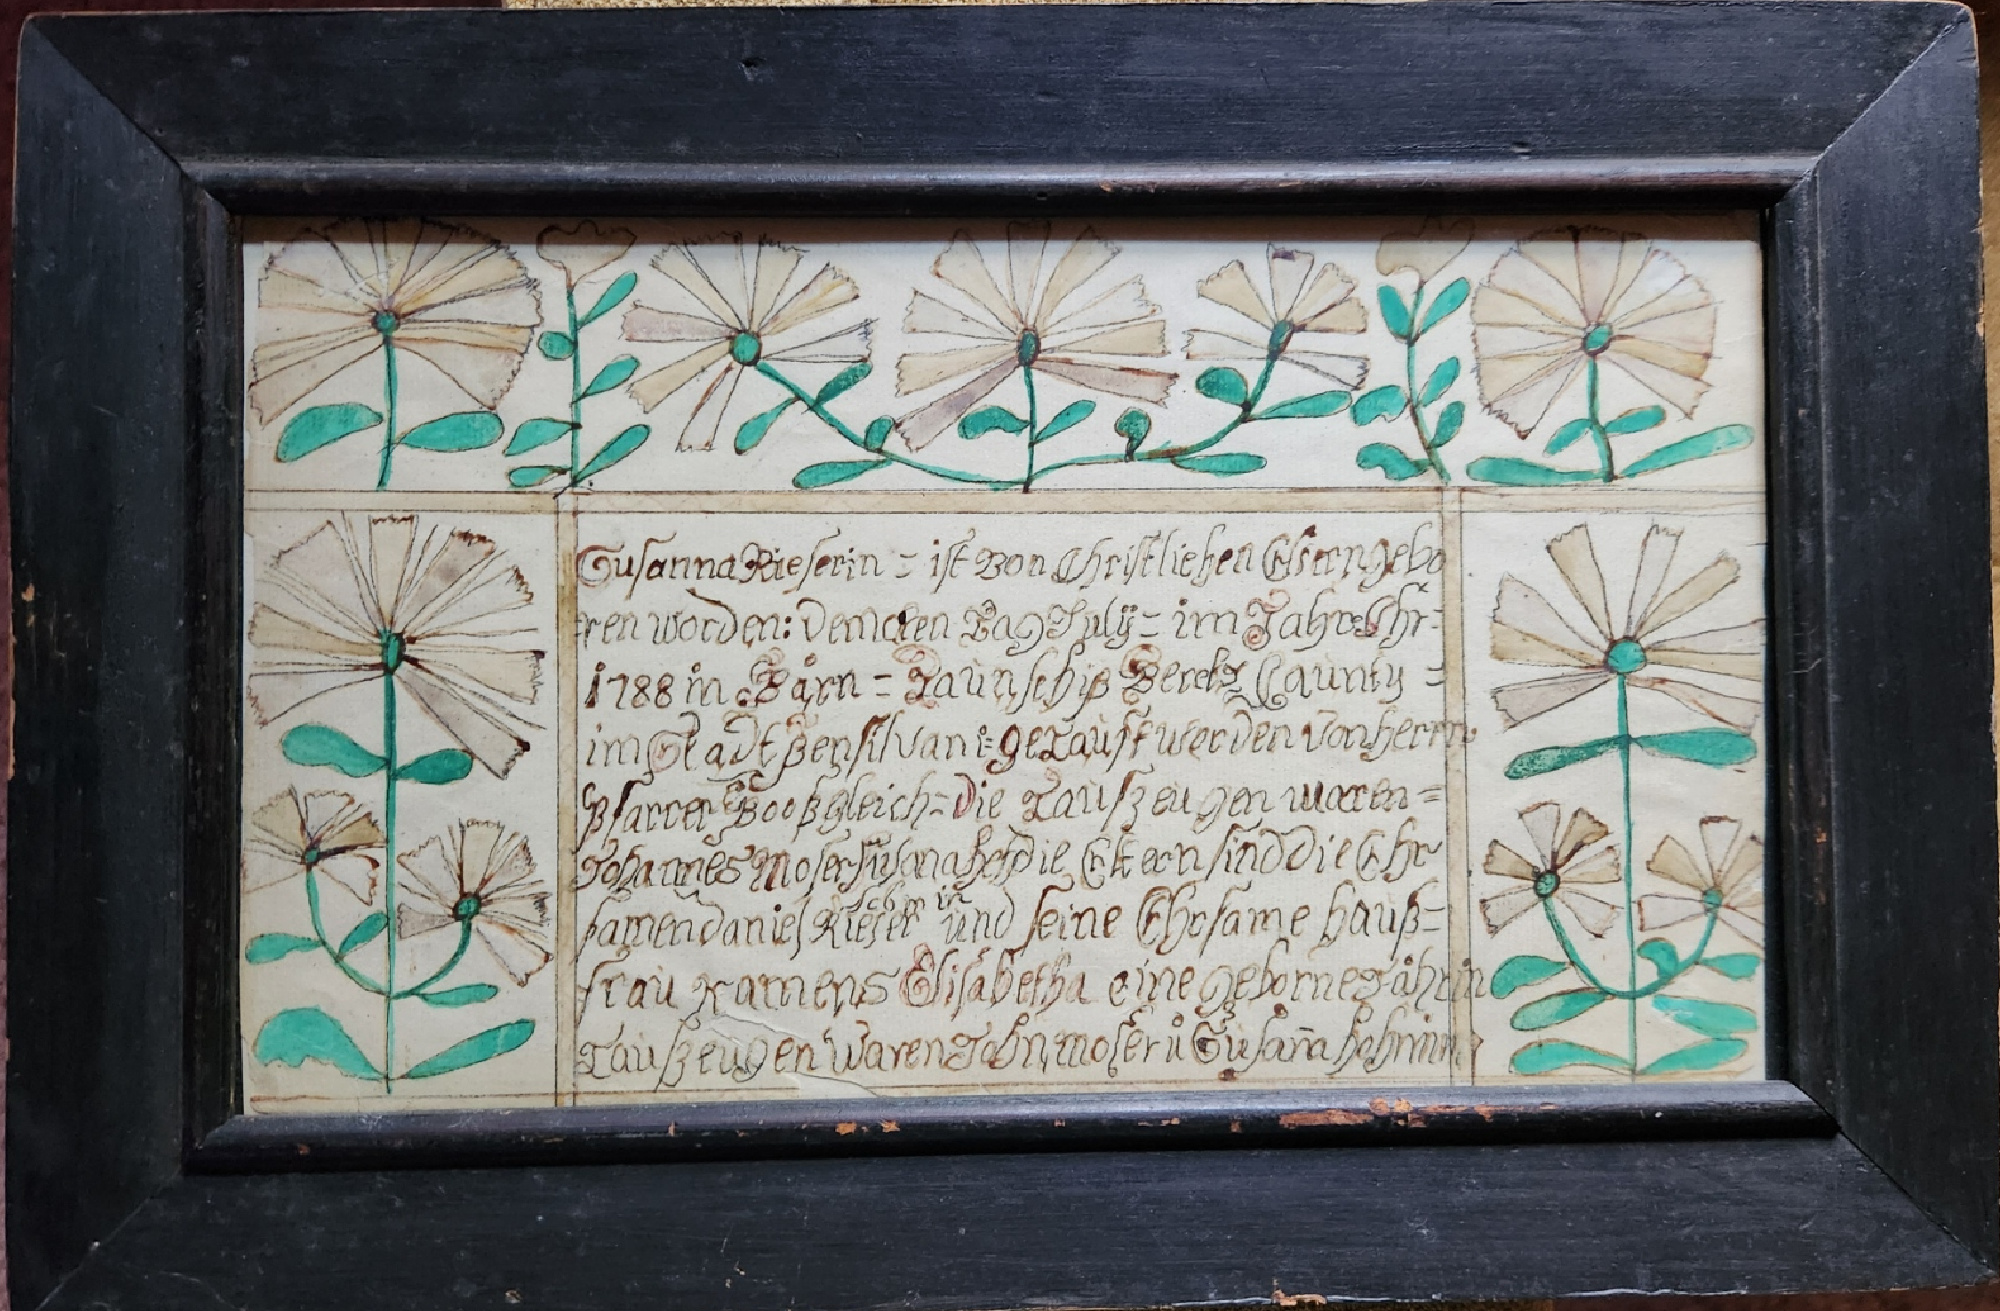 Susanna Rieserin = ist von Christlichen Eltern gebo
ren worden: dem ten Tag July = im Jahr Chr=
1788 in Bärn = Taunschip Berels Caunty =
im Stadt Bensilvani= getauft werden von herrn
Pfarrer Booß gleich= die Taufzeugen waren=
Johannes Moser die Eltern sind die Ehr
samen daniel Rieser und seine Ehrsame hauß=
frau Namens Elisabetha eine geborne
Taufzeugen waren John, moser ů Susaña